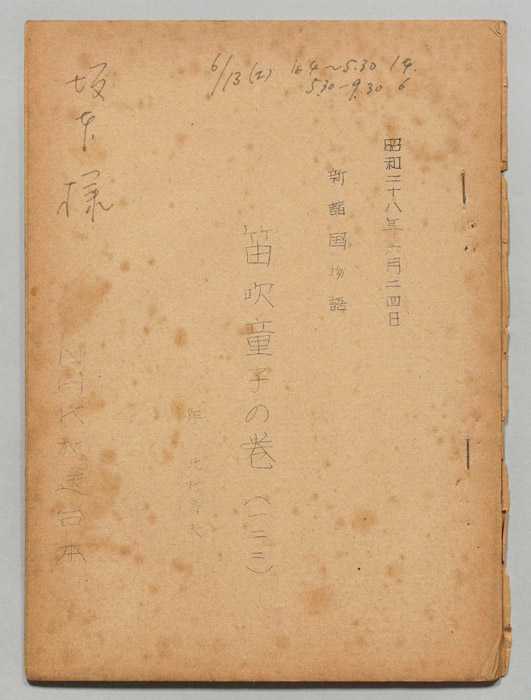 6/13(土) 164～5.30 14.
5.30-9.30 6
昭和二十八年六月二四日
新諸国物語
笛吹童子の巻(一二二)
作 北村寿夫
坂本様
NHK放送台本